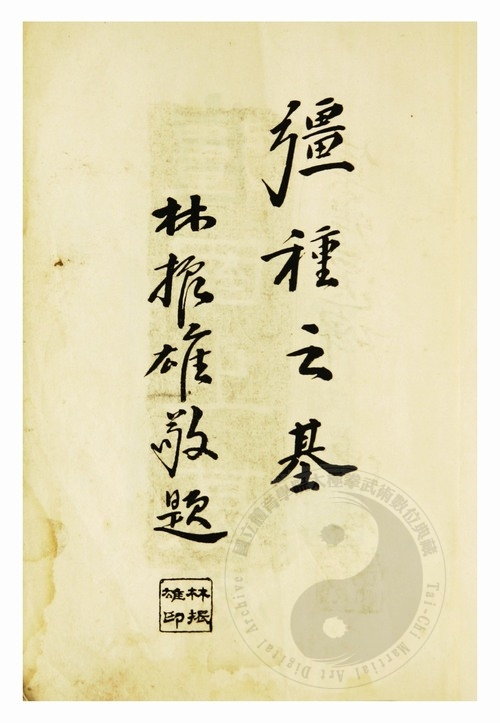 彊種之基
林振雄敬題
林振
雄印
國立體育學 太極拳武術數位典藏
Tai-Chi Martial Art Digital Archives